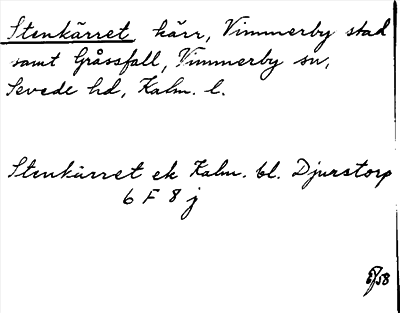 Stenkärret kärr, Vimmerby stad
samt Gråssfall, Vimmerby sn,
Sevede hd, Kalm. l.
Stenkärret ek Kalm. bl. Djurstorp
6 F 8 j
/58